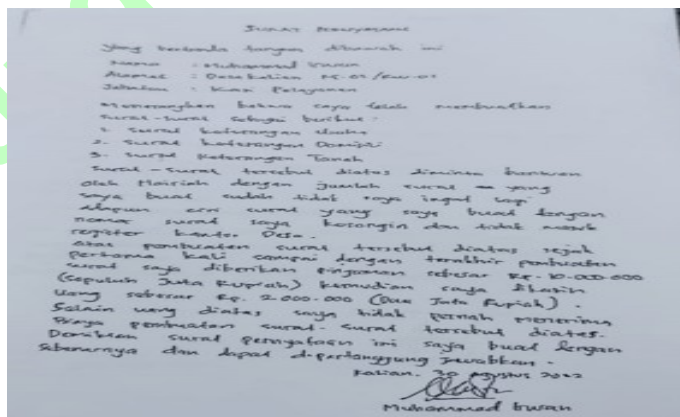 SURAT PERNYATAAN
Yang bertanda tangan dibawah ini
Nama : Muhammad Irwan
Alamat : Desa Kalian RT.02/RW.02
Jabatan : Kasi Pelayanan
Menerangkan bahwa saya telah membuatkan
surat-surat sebagai berikut :
1. Surat keterangan Usaha
2. Surat keterangan Domisili
3. Surat Keterangan Tanah
Surat-surat tersebut diatas diminta buatkan
oleh Mairiah dengan jumlah surat yang
saya buat sudah tidak saya ingat lagi
Adapun arsi surat yang saya buat dengan
nomor surat saya karangin dan tidak masuk
register kantor Desa.
atas pembuatan surat tersebut diatas sejak
pertama kali sampai dengan terakhir pembuatan
surat saya diberikan pinjaman sebesar Rp. 10.000.000
(Sepuluh Juta Rupiah) kemudian saya dikasih
Uang sebesar Rp. 2.000.000 (Dua Juta Rupiah).
Selain uang diatas saya tidak pernah menerima
Biaya pembuatan surat-surat tersebut diatas.
Demikian surat pernyataan ini saya buat dengan
sebenarnya dan dapat dipertanggung jawabkan.
Kalian, 30 Agustus 2022
Muhammad Irwan